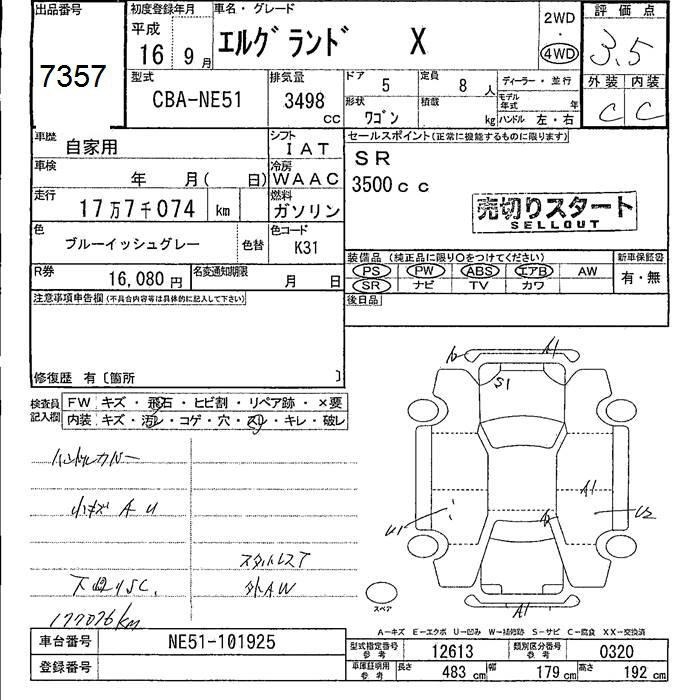 出品番号
7357
初度登録年月
平成
16 9月
車名・グレード
エルグランド X
2WD
・
4WD
評価点
3.5
外装 内装
C C
型式
CBA-NE51
排気量
3498 cc
ドア 5
形状 ワゴン
定員 8人
積載 kg
ディーラー・並行
モデル年式 年
ハンドル 左・右
車歴 自家用
シフト IAT
車検 年 月( 日)
冷房 WAAC
走行 17万7千074 km
燃料 ガソリン
色 ブルーイッシュグレー 色替
色コード K31
R券 16,080円
名変通知期限 月 日
セールスポイント(正常に機能するものに限ります)
SR
3500cc
売切りスタート
SELLOUT
装備品(純正品に限り○をつけてください)
新車保証書
PS PW ABS エアB AW
SR ナビ TV カワ
有・無
後日品
注意事項申告欄(不具合内容等は具体的に記入して下さい)
修復歴 有〔箇所 〕
検査員記入欄
FW キズ・飛石・ヒビ割・リペア跡・×要
内装 キズ・汚レ・コゲ・穴・スレ・キレ・破レ
ハンドルカバー
小キズ A U
スタットレスT
下回りSC.
外AW
177076km
A1
S1
A1
U1
U2
A1
スペア
A-キズ E-エクボ U-凹み W-補修跡 S-サビ C-腐食 XX-交換済
車台番号 NE51-101925
登録番号
型式指定番号参考 12613
類別区分番号参考 0320
車庫証明用参考
長さ 483cm
幅 179cm
高さ 192cm